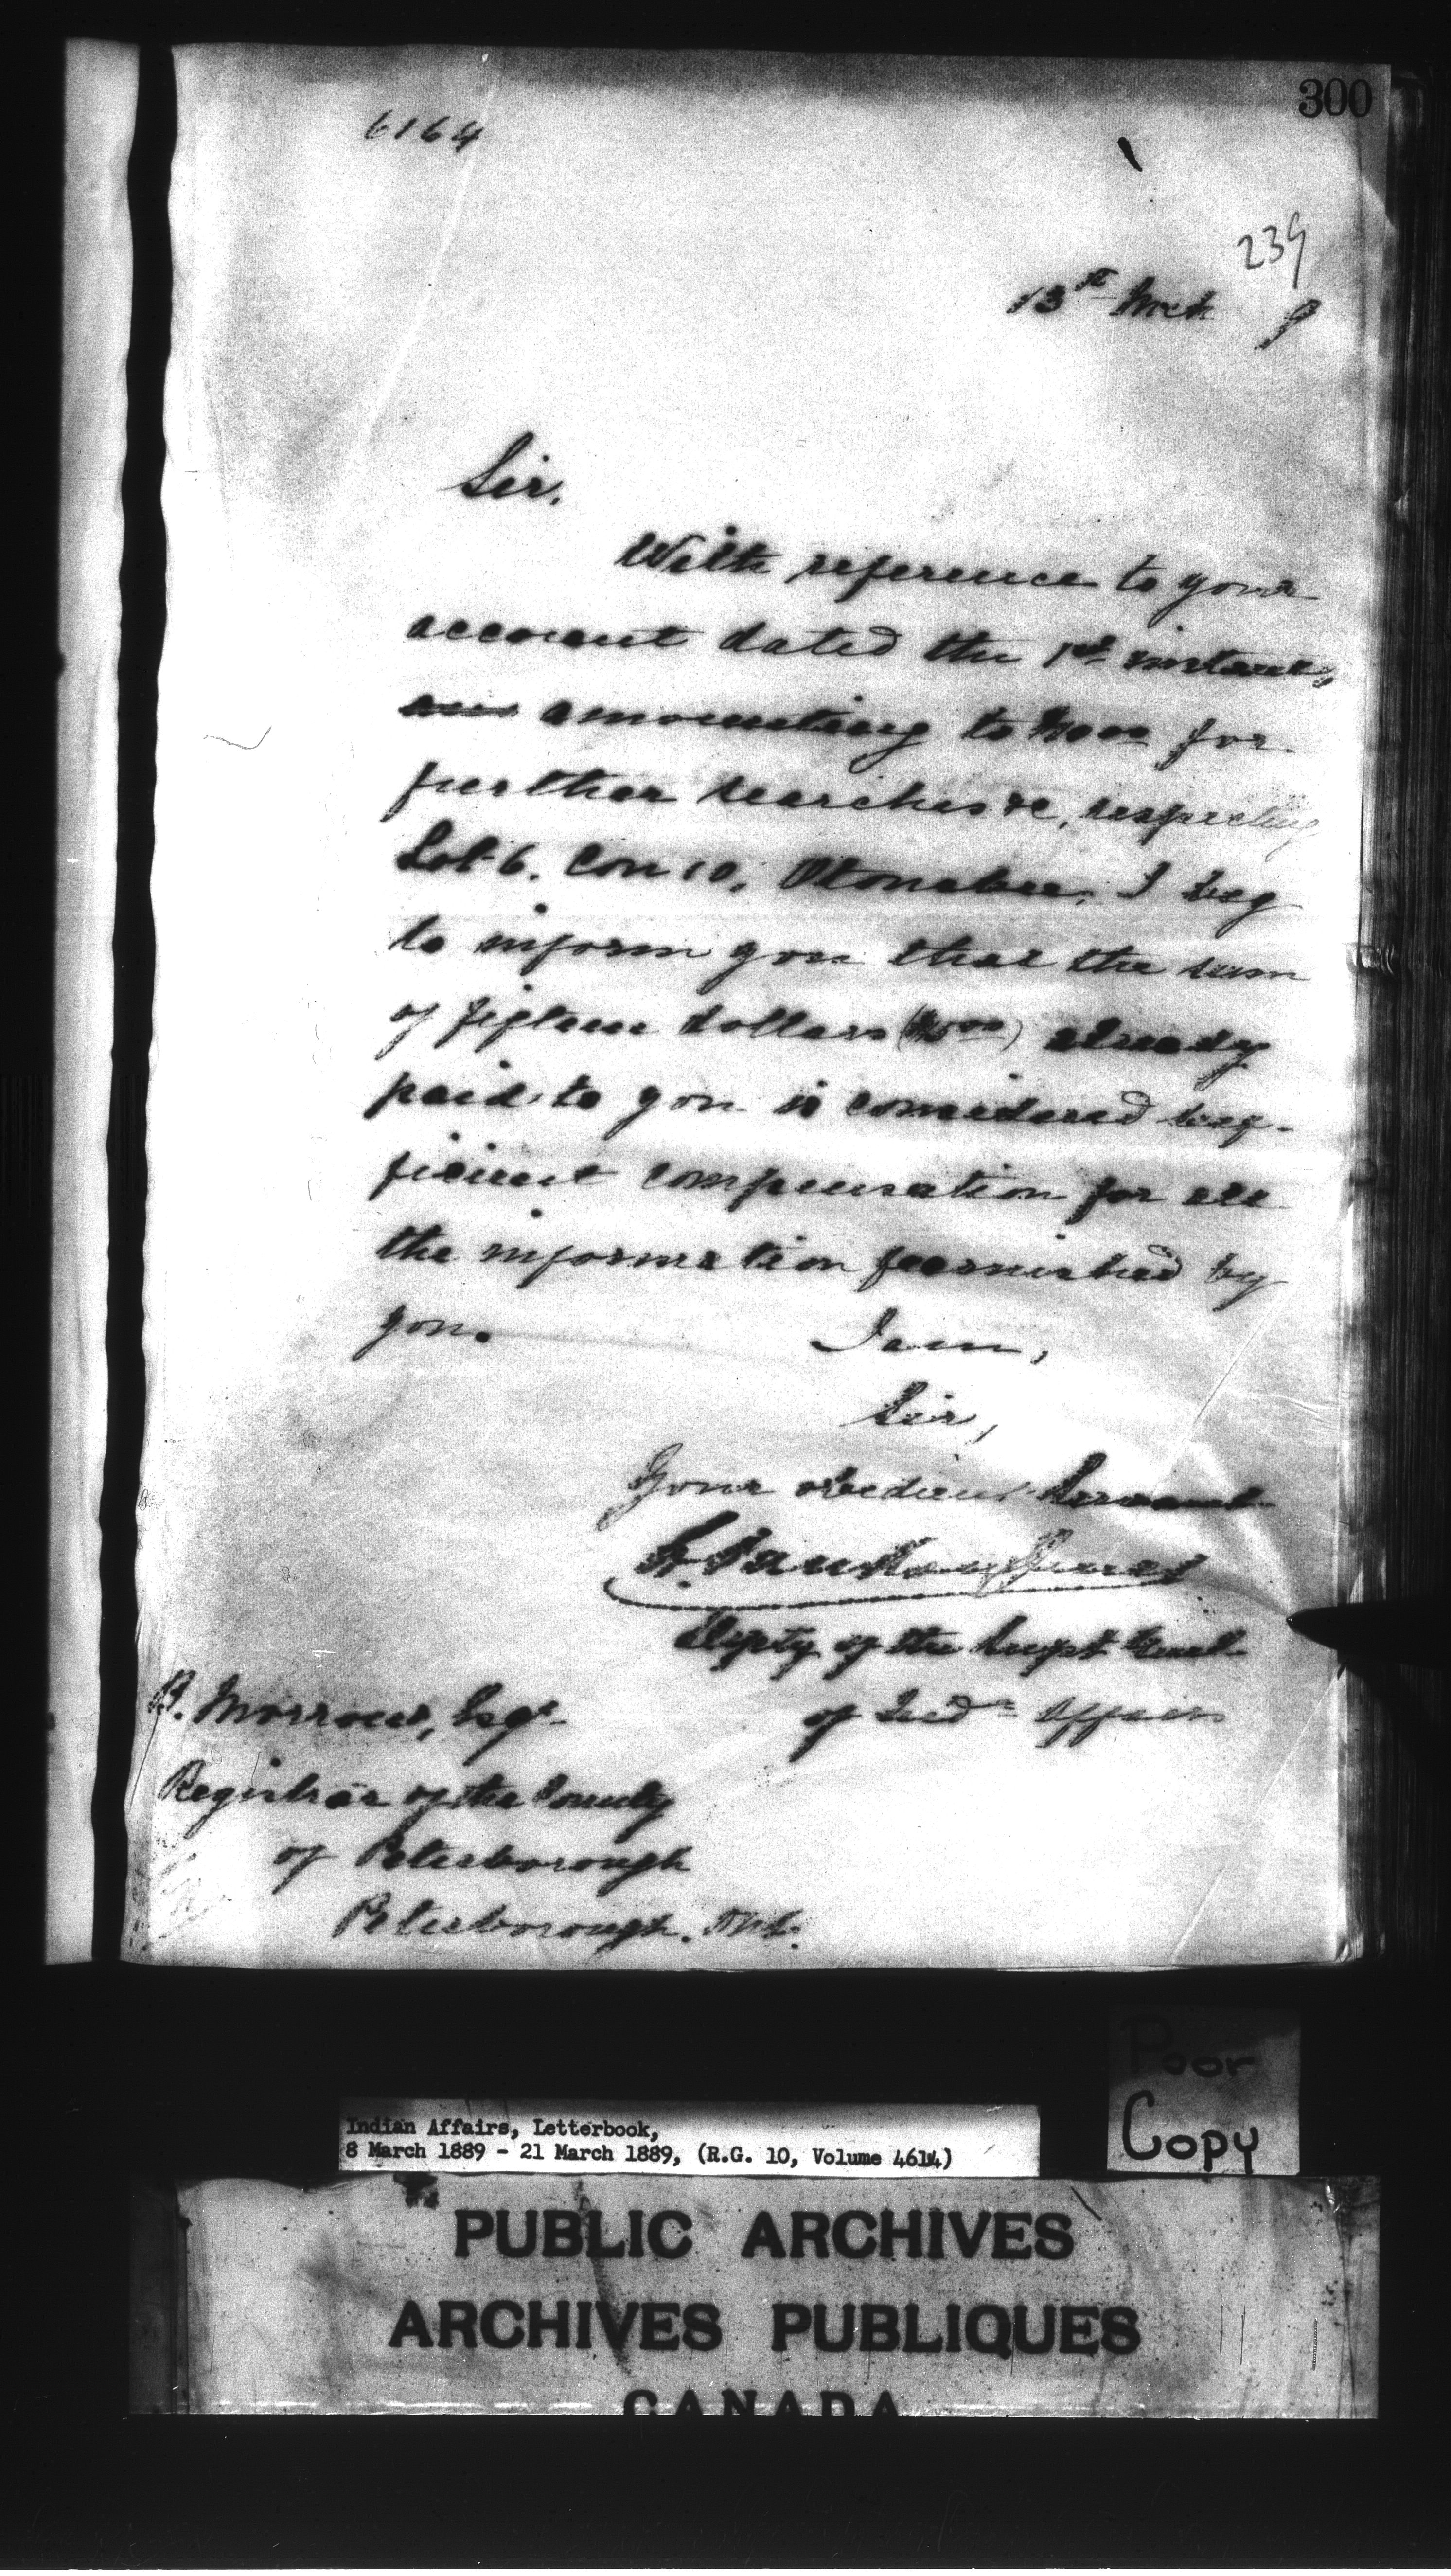 300
6164
239
13th Mch 9
Sir,
With reference to your
account dated the 1st instant,
amounting to for
further searches &c, respecting
Lot 6. Con 10, Otonabee, I beg
to inform you that the sum
of fifteen dollars already
paid to you is considered suf-
ficient compensation for all
the information furnished by
you.
I am,
Sir,
Your obedient Servant
L. Vankoughnet
Deputy of the Supt Genl
of Indn Affairs
B. Morrow, Esqr
Registrar of the County
of Peterborough
Peterborough. Ont.
Poor
Copy
Indian Affairs, Letterbook,
8 March 1889 - 21 March 1889, (R.G. 10, Volume 4614)
PUBLIC ARCHIVES
ARCHIVES PUBLIQUES
CANADA